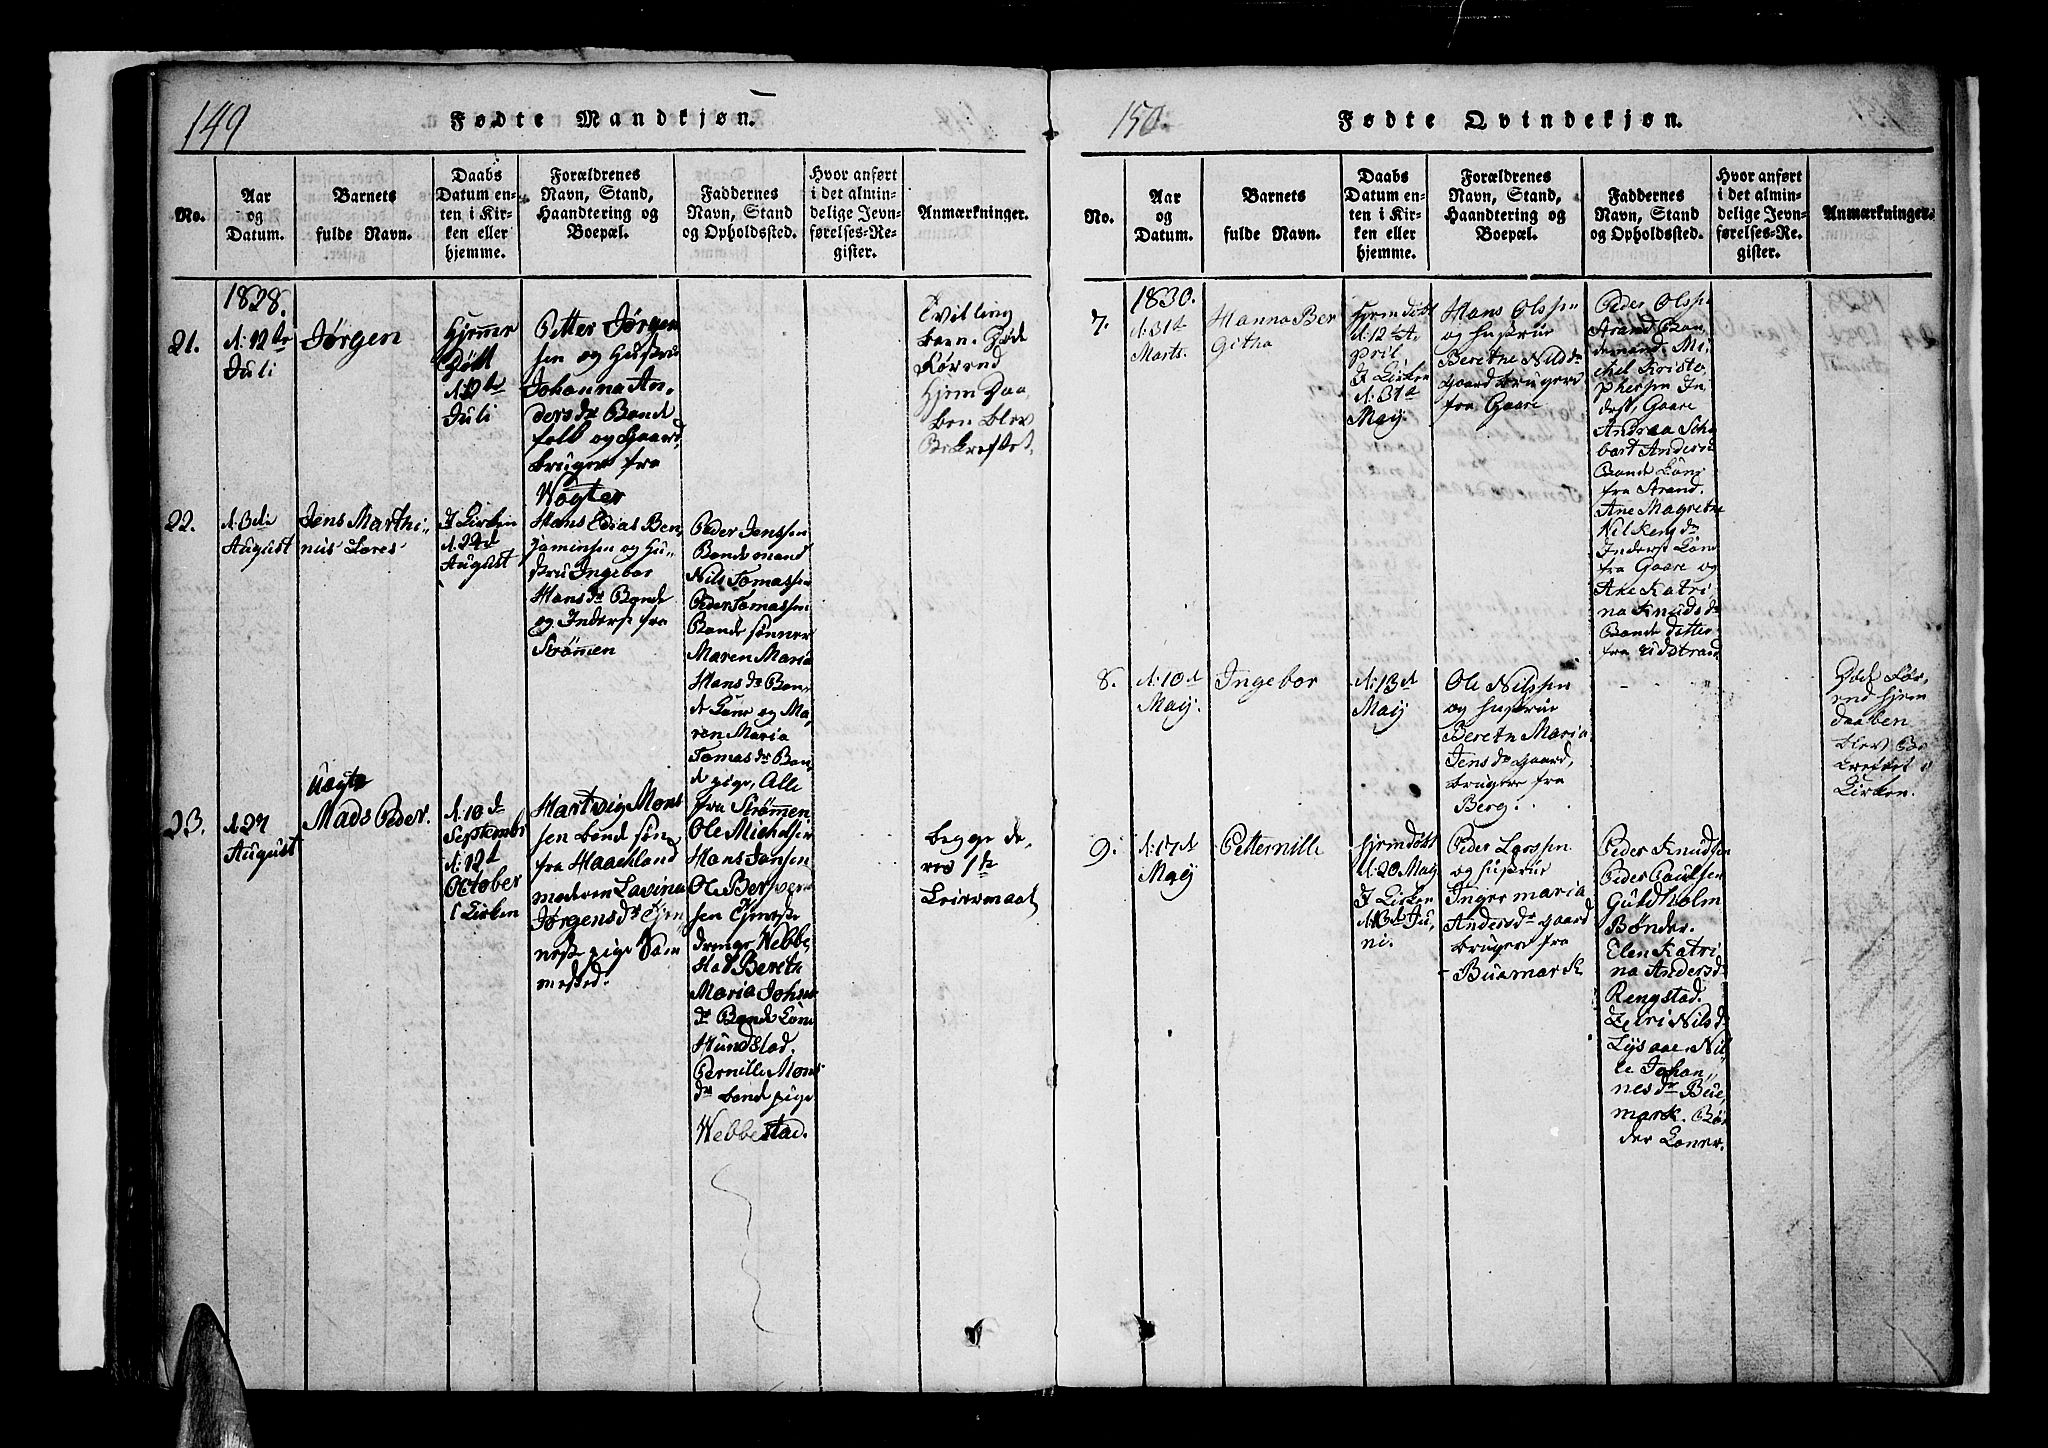 149
Fødte Mandkjøn.
No.
Aar
og
Datum.
Barnets
fulde Navn.
Daabs
Datum en-
ten i Kir-
ken eller
hjemme.
Forældrenes
Navn, Stand,
Haandtering og
Boepæl.
Faddernes
Navn, Stand
og Opholdssted.
Hvor anført
i det almin-
delige Jevn-
førelses-Re-
gister.
Anmærkninger.
1828.
21.
d: 12te
Juli
Jørgen
Hjemme
Døbt
d. 12te
Juli
Petter Jørgen
sen og Hustru
Johanna An,
dersdr Bonde
folk og Gaard,
bruger fra
Wogter
Tvilling
barn. Død
Førend
Hjem Daa,
ben blev
Bekreftet.
22.
d. 3die
August
Jens Marthi-
nus Lares
I Kirken
d. 24d
August
Hans Edias Ben,
jaminsen og Hu-
stru Ingebor
Hansdr Bonde
og Inderst fra
Strømen
Peder Jenssen
Bondemand
Nils Tomassen
Peder Tomassen
Bonde sønner
Maren Maria
Hansdr Bon-
de Kone og Ma,
ren Maria
Tomasdr Bon,
de pige, Alle
fra Strømen
23.
d. 27
August
Uægte
Mads Peder.
d. 10de
Septembr
d. 12t
October
i Kirken
Hartvig Mons
sen bonde søn
fra Haakland
moderen Lavina
Jørgensdr Tjen
neste pige Sam
mested.
Ole Michelsen
Hans Jansen
Ole Berspen
sen Tjeneste
drenge Webbe,
stad Bereth
Maria Johns
dr Bonde Kone
Hundstad.
Pernille Mons
dr bonde pige
Webbestad.
begge de,
res 1te
Leiermaal
150.
Fødte Qvindekjøn.
No.
Aar
og
Datum.
Barnets
fulde Navn.
Daabs
Datum en-
ten i Kir-
ken eller
hjemme.
Forældrenes
Navn, Stand,
Haandtering og
Boepæl.
Faddernes
Navn, Stand
og Opholdssted.
Hvor anført
i det almin-
delige Jevn-
førelses-Re-
gister.
Anmærkninger.
1830.
7.
d. 31t
Marts.
Hanna Ber
Githa
Hjemdøbt
d: 12te A
pril,
I Kirken
d. 31t
Maij.
Hans Olssen
og hustrue
Berethe Nilsdr
gaard brugere
fra Gaare
Peder Olssen
Strand Bon,
demand. Mi,
chel Kristo,
phersen In,
derst, Gaare
Andrea Schi
bart Andersd
Bonde Kone
fra Strand.
Ane Magrethe
Nilkensdr
Inderst Kone
fra Gaare og
Ane Katri,
na Knudsdr
Bonde datter
fra Vidstrand
8.
d. 10d
Maij.
Ingebor
d. 13d
Maij
Ole Nilssen
og hustrue
Berethe Maria
Jensdr gaard,
brugere fra
Berg.
Død Før,
end hjem
daaben
blev Be
kreftet i
Kirken.
9.
d. 17d
Maij
Petternille
hjemdøbt
d. 20 Maij
I Kirken
d. 13d Ju,
ni.
Peder Larssen
og hustrue
Ingermaria
Andersdr gaard
brugere fra
Buamark
Peder Knudsen
Peder Paulsen
Guldholm
Bønder.
Elen Katri
na Andersd
Rengstad.
Zetri Nilsd
Lysaae. Nil
le Johan,
nesdr Bue,
mark. Bøn
der Koner.